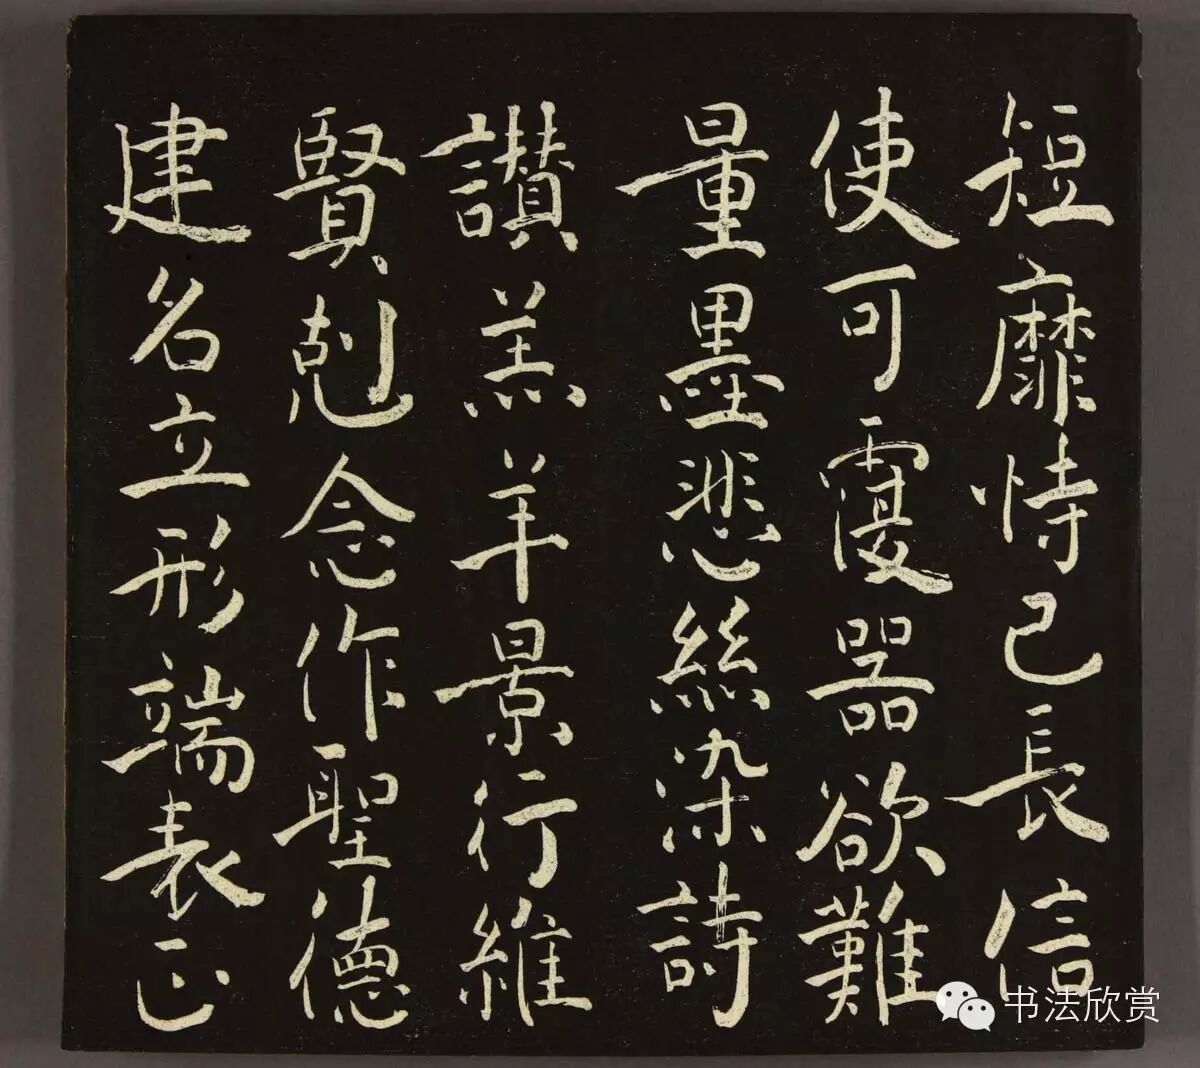 短靡恃己長信
使可覆器欲難
量墨悲絲染詩
讃羔羊景行維
賢剋念作聖德
建名立形端表正
书法欣赏